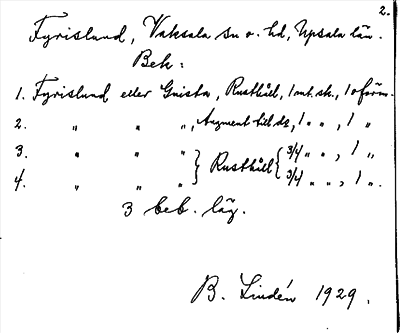 2.
Fyrislund, Vaksala sn o. hd, Upsala län.
Bek:
1. Fyrislund eller Gnista, Rusthåll, 1 mt. sk., 1 oförm.
2. " " ", Augment till do, 1 " ", 1 "
3. " " " } Rusthåll { 3/4 " ", 1 "
4. " " " } { 3/4 " ", 1 ".
3 beb. läg.
B. Lindén 1929.